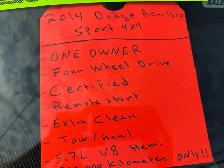 2014 Dodge Ram 1500
Sport 4x4
- ONE OWNER
- Four Wheel Drive
- Certified
- Remote start
- Extra Clean
- Tow/haul
- 5.7L V8 Hemi
Kilometers only!!